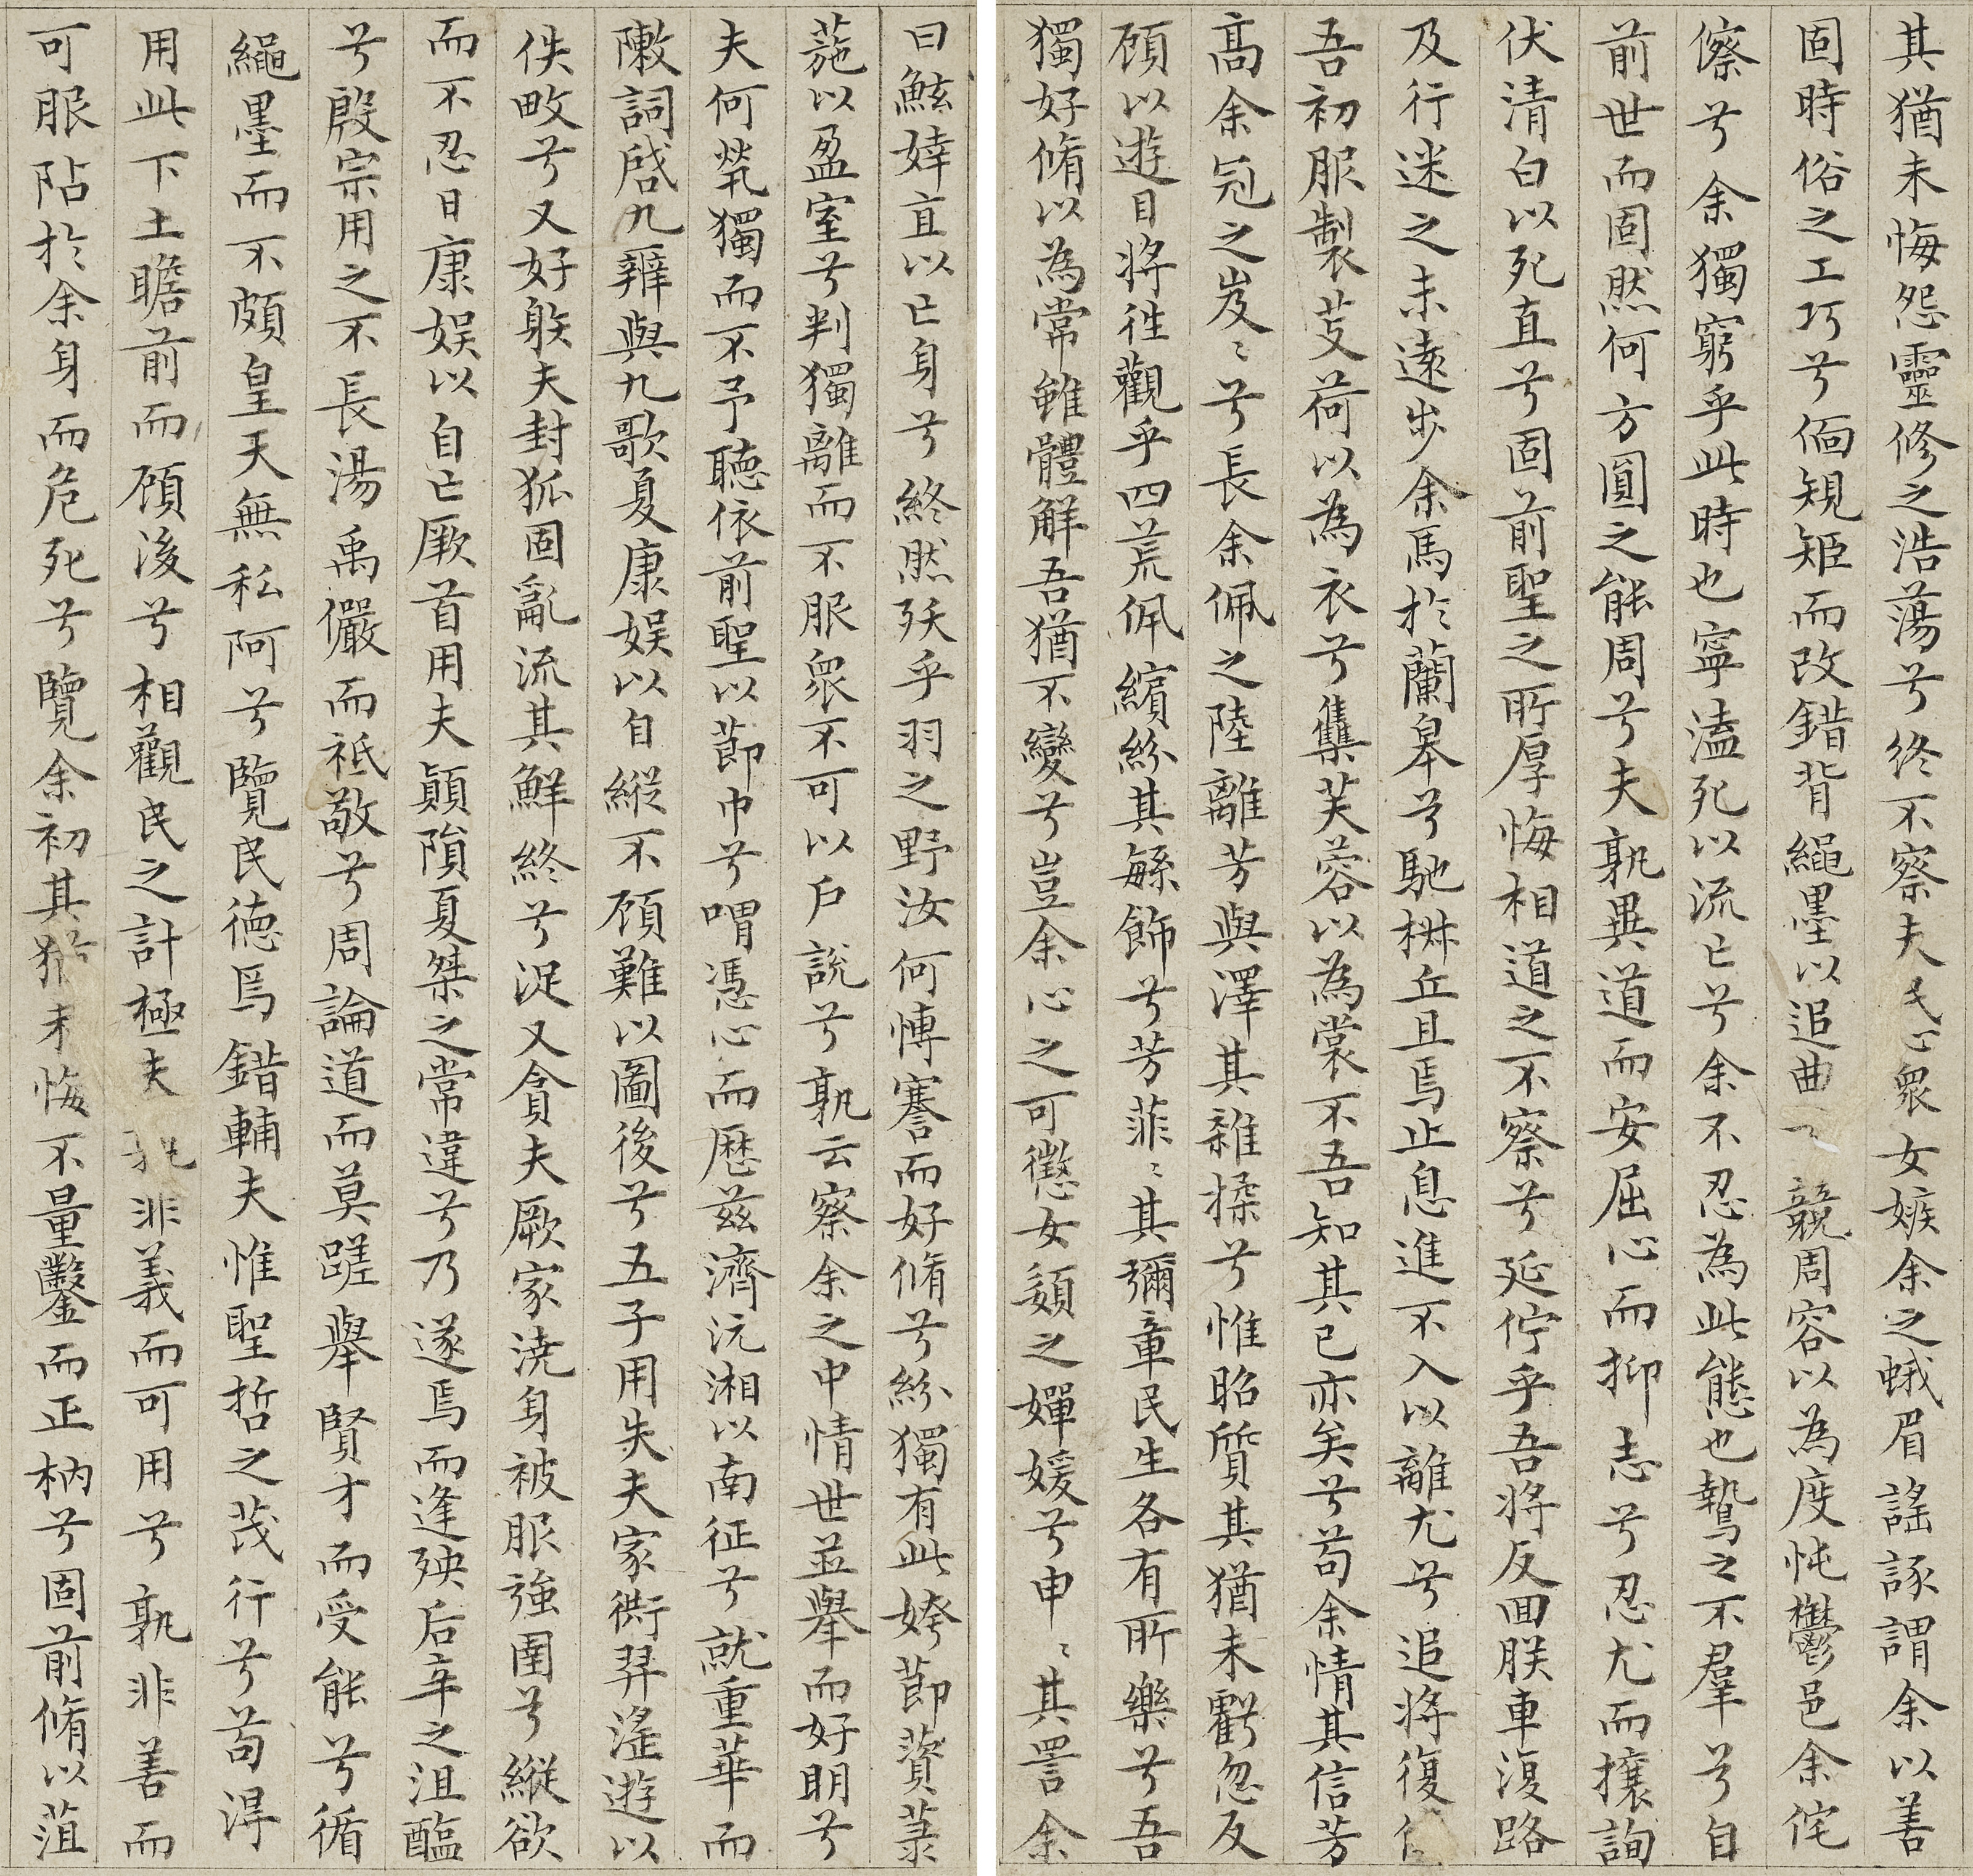 其猶未悔怨靈修之浩蕩兮終不察夫民心眾女嫉余之蛾眉謠諑謂余以善
固時俗之工巧兮偭規矩而改錯背繩墨以追曲競周容以為度忳鬱邑余侘
傺兮余獨窮乎此時也寧溘死以流亡兮余不忍為此態也鷙之不羣兮自
前世而固然何方圓之能周兮夫孰異道而安屈心而抑志兮忍尤而攘詢
伏清白以死直兮固前聖之所厚悔相道之不察兮延佇乎吾將反回朕車復路
及行迷之未遠步余馬於蘭皋兮馳椒丘且焉止息進不入以離尤兮退將復
吾初服製芰荷以為衣兮集芙蓉以為裳不吾知其已亦矣兮苟余情其信芳
高余冠之岌〻兮長余佩之陸離芳與澤其雜揉兮惟昭質其猶未虧忽反
顧以遊目將往觀乎四荒佩繽紛其繁飾兮芳菲〻其彌章民生各有所樂兮吾
獨好脩以為常雖體解吾猶不變兮豈余心之可懲女嬃之嬋媛兮申〻其詈余
曰鮌婞直以亡身兮終然殀乎羽之野汝何博謇而好脩兮紛獨有此姱節薋菉
葹以盈室兮判獨離而不服眾不可以戶說兮孰云察余之中情世並舉而好朋兮
夫何煢獨而不予聽依前聖以節中兮喟憑心而歷茲濟沅湘以南征兮就重華而
敶詞啟九辯與九歌夏康娛以自縱不顧難以圖後兮五子用失夫家衖羿淫遊以
佚畋兮又好躲夫封狐固亂流其鮮終兮浞又貪夫厥家澆身被服強圉兮縱欲
而不忍日康娛以自亡厥首用夫顛隕夏桀之常違兮乃遂焉而逢殃后辛之沮醢
兮殷宗用之不長湯禹儼而祗敬兮周論道而莫蹉舉賢才而受能兮循
繩墨而不頗皇天無私阿兮覽民德焉錯輔夫惟聖哲之茂行兮苟得
用此下土瞻前而顧後兮相觀民之計極夫孰非義而可用兮孰非善而
可服阽於余身而危死兮覽余初其猶未悔不量鑿而正枘兮固前脩以菹